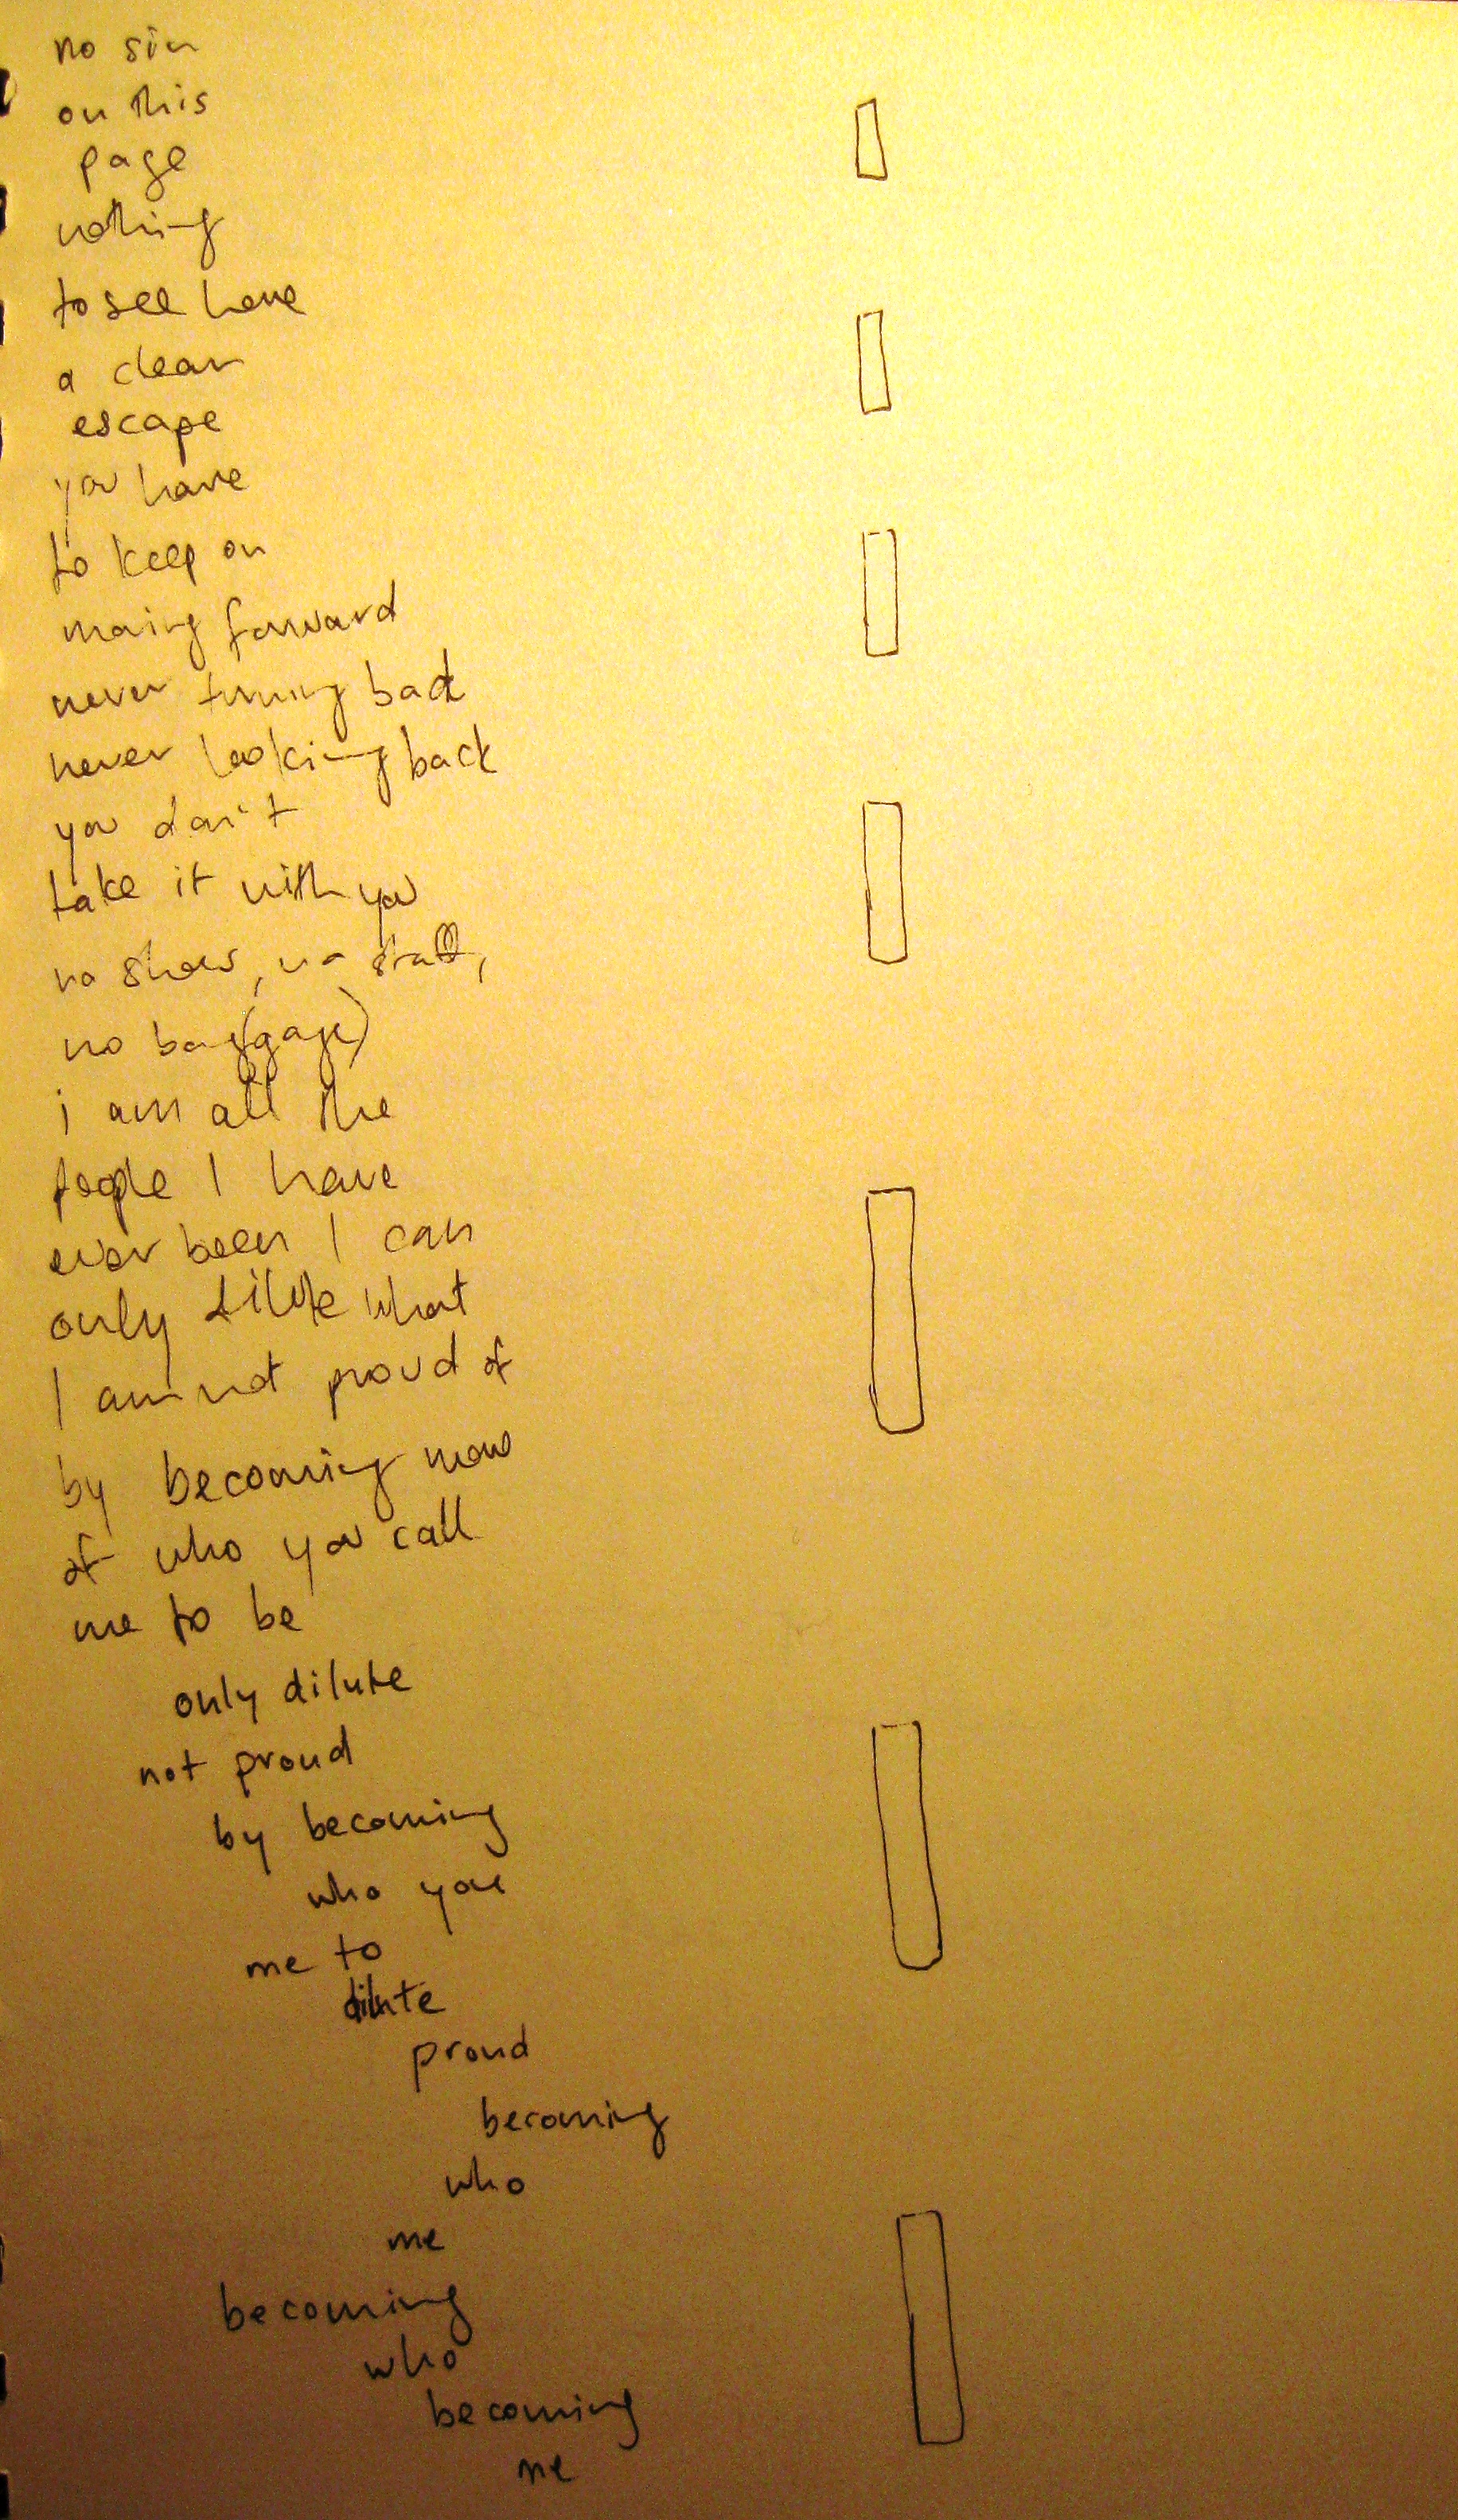 no sin
on this
page
nothing
to see here
a clean
escape
you have
to keep on
moving forward
never turning back
never looking back
you don't
take it with you
no shoes, no staff,
no bag(gage)
i am all the
people I have
ever been I can
only dilute what
I am not proud of
by becoming more
of who you call
me to be
only dilute
not proud
by becoming
who you
me to
dilute
proud
becoming
who
me
becoming
who
becoming
me